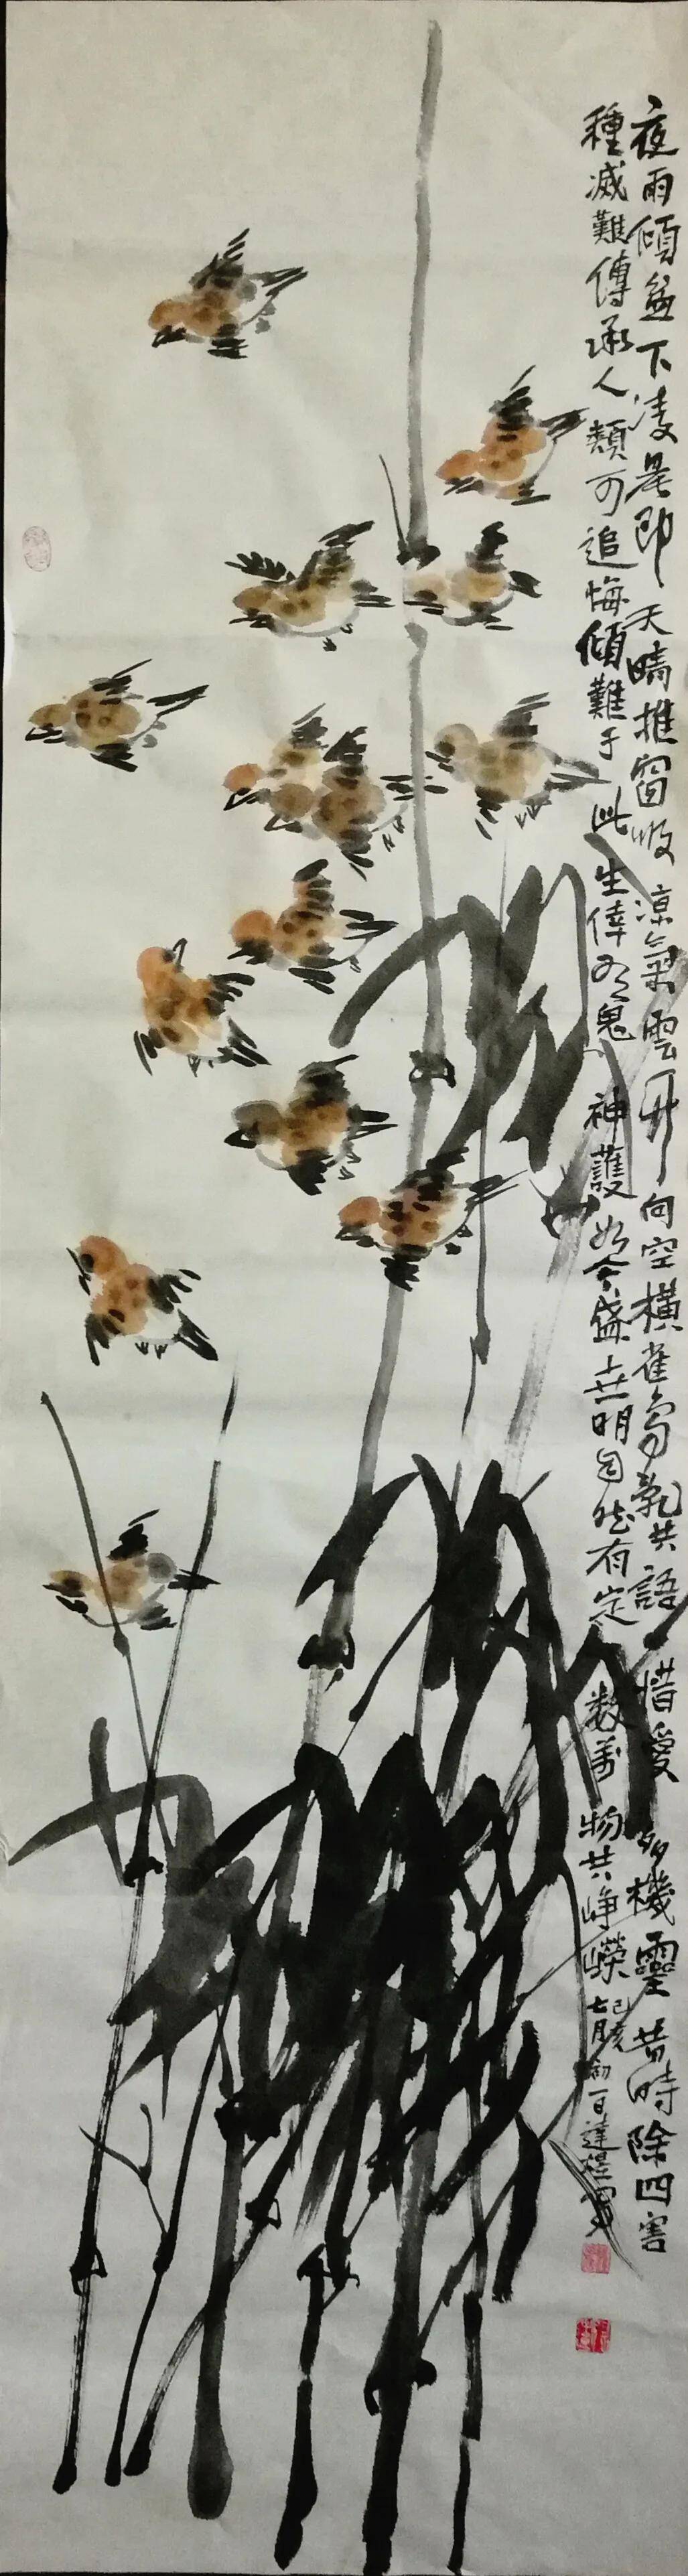 夜雨傾盆下凌晨即天晴推窗吸涼氣雲開向空橫雀鳥亂共語惜愛多機靈昔時除四害
種滅難傳承人類可追悔傾難于此生倖有鬼神護如今盛世明自然有定數萬物共崢嶸
己亥七月初一日達煜寫